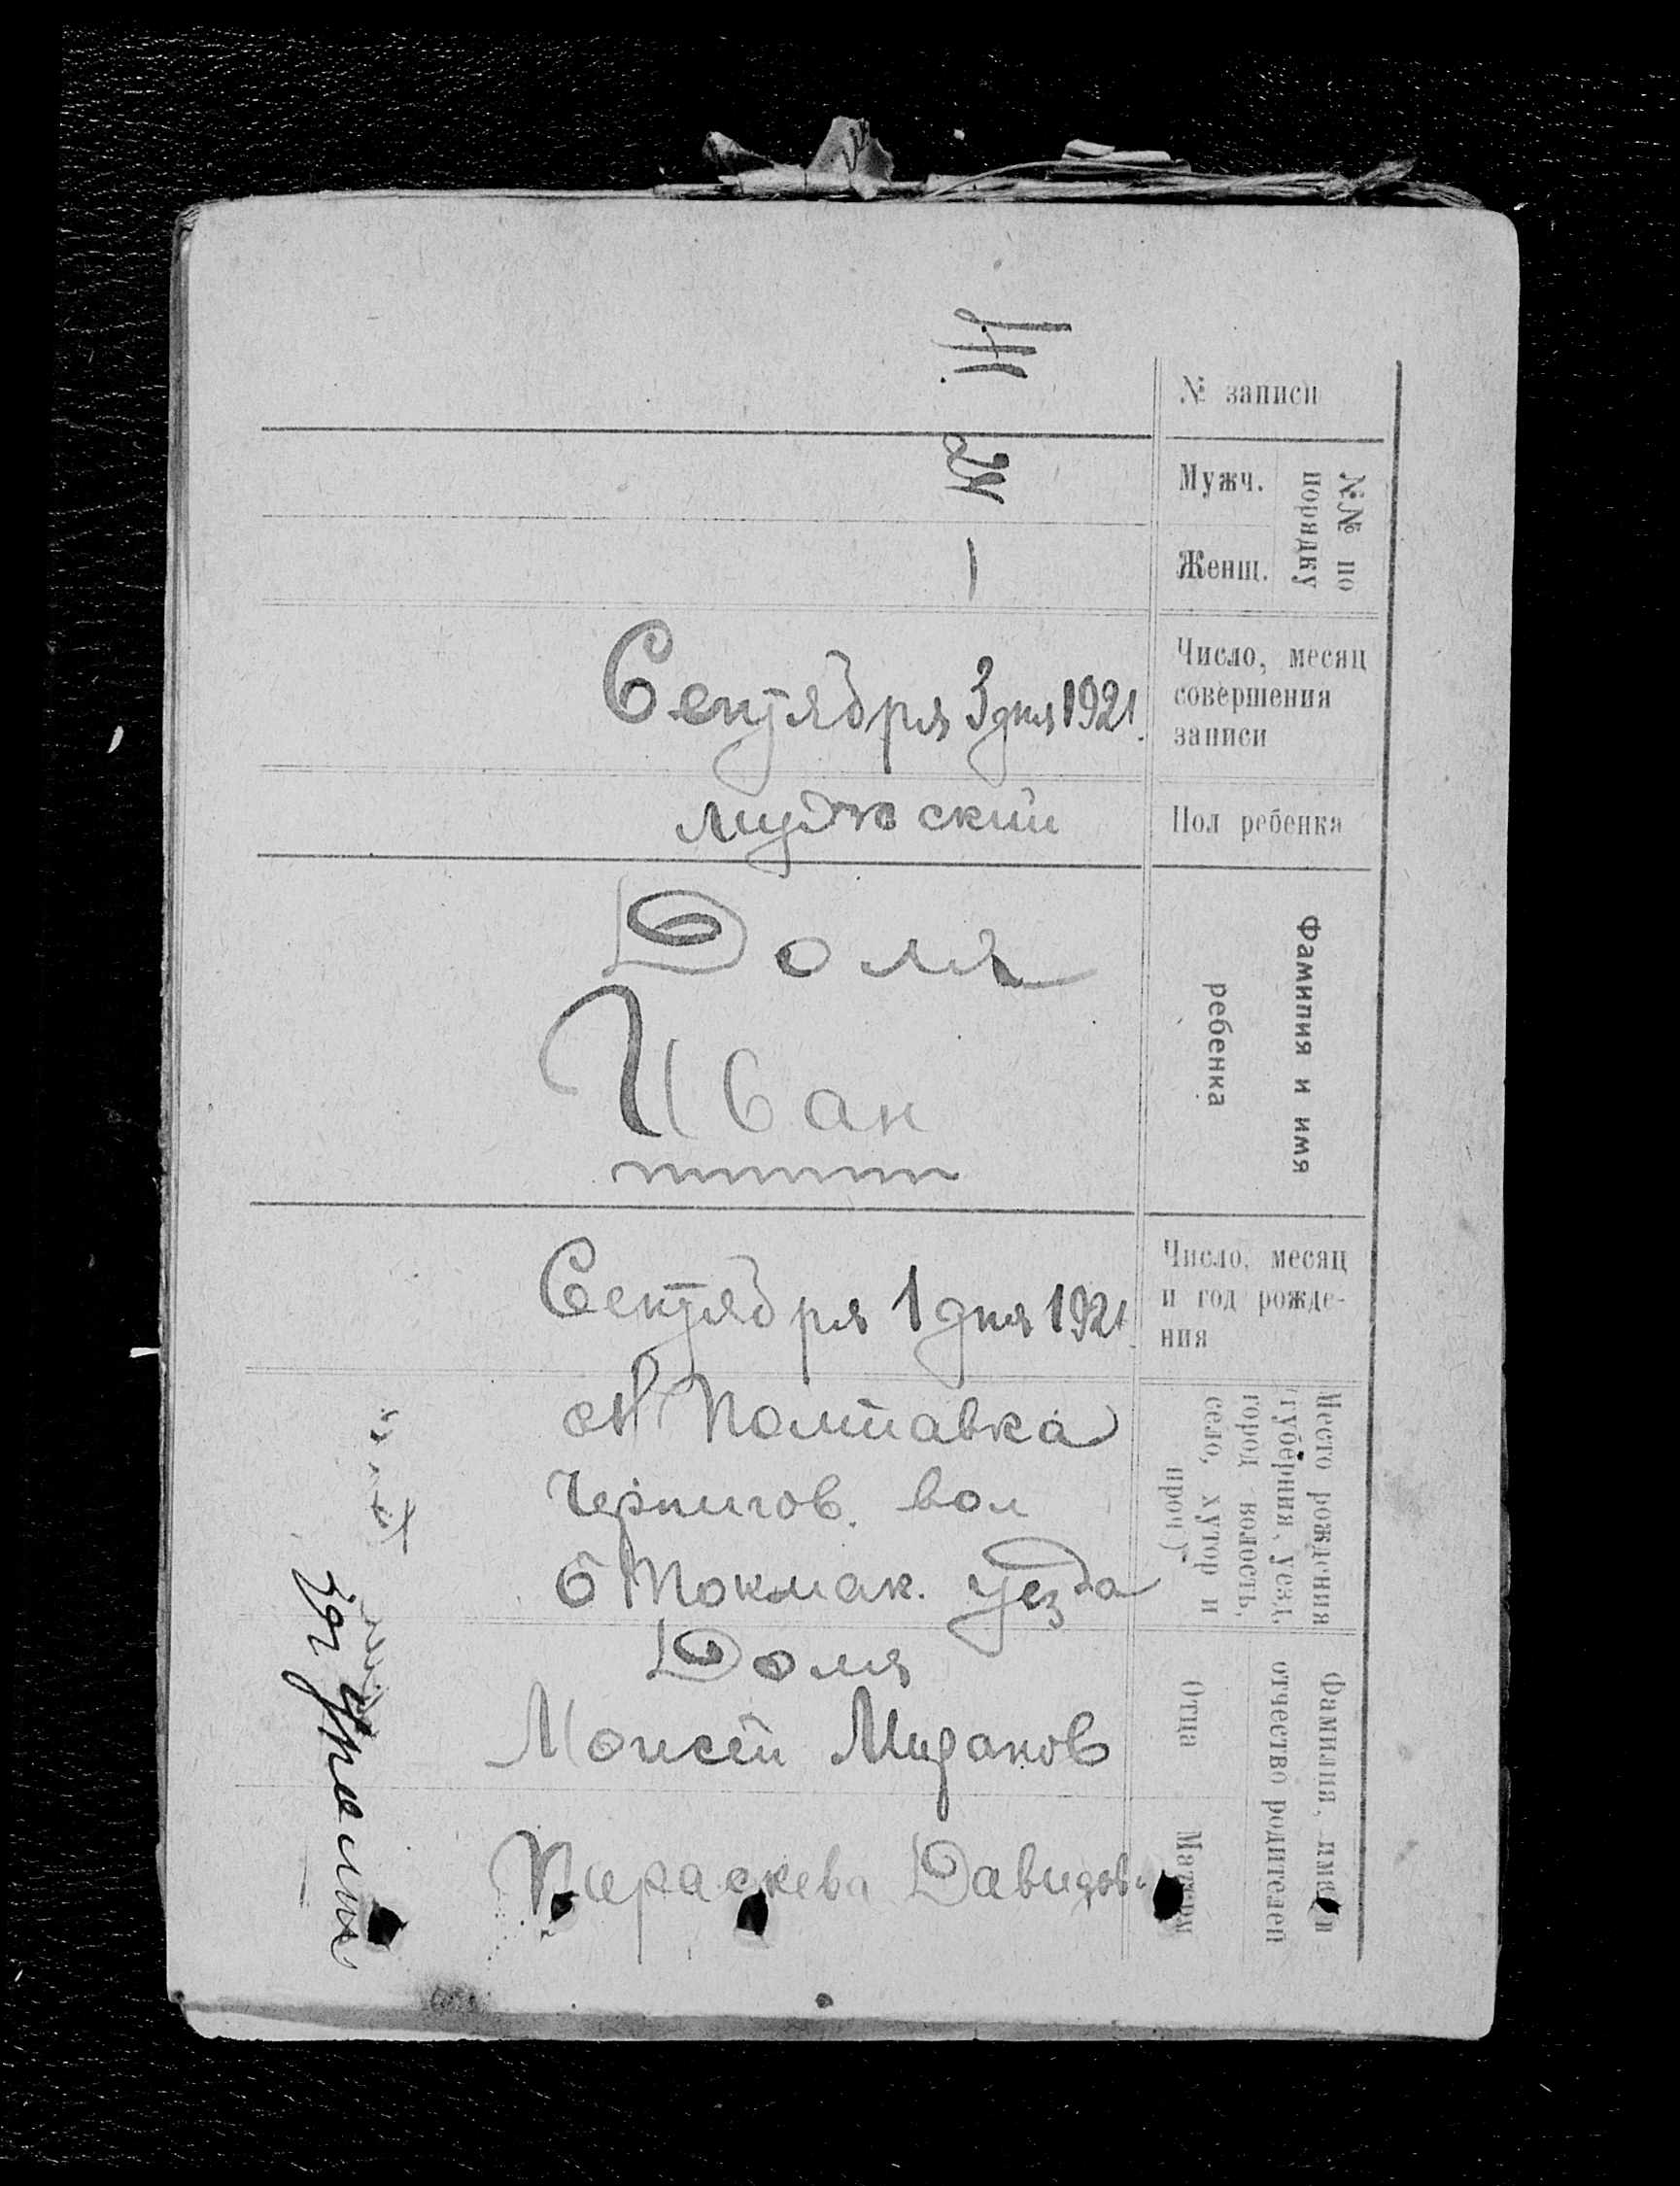 № записи
№№ по
порядку
Мужч.
Женщ.
Число, месяц
совершения
записи
Сентября 3 дня 1921.
Пол ребенка
мужеский
Фамилия и имя
ребенка
Доля
Иван
Число, месяц
и год рожде-
ния
Сентября 1 дня 1921.
Место рождения
(губерния, уезд,
город волость,
село, хутор и
проч)
с Н Полтавка
Чернигов. вол
Б Токмак. уезда
Фамилия, имя и
отчество родителей
Отца
Доля
Моисей
Матери
Параскева Давидов